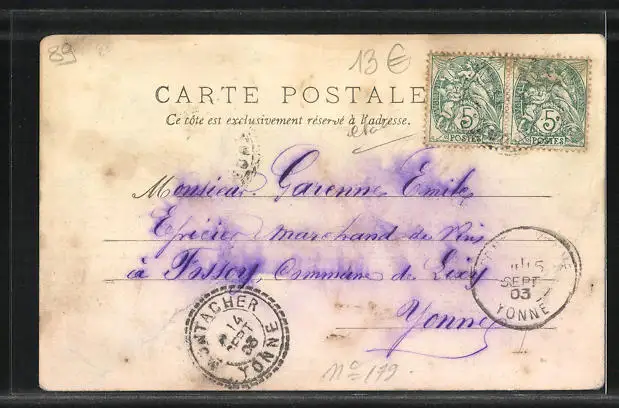 89
13 €
5c 5c
POSTES POSTES
CARTE POSTALE
Ce côté est exclusivement réservé à l'adresse.
Monsieur Garenne Emile
Epicier marchand de Vins
à Fossoy, Commune de Lixy
Yonne
15
SEPT
03
YONNE
MONTACHER
14
SEPT
03
YONNE
No 179